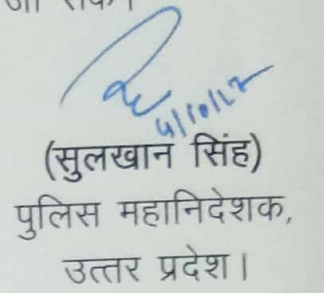 (सुलखान सिंह)
पुलिस महानिदेशक,
उत्तर प्रदेश।